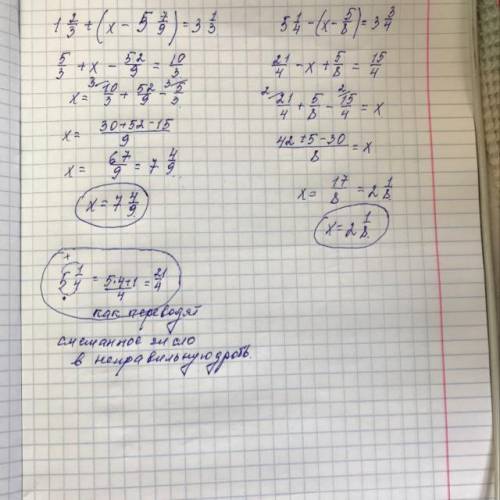 1 2/3 + (x - 5 7/9) = 3 1/3
5/3 + x - 52/9 = 10/3
x = 10/3 + 52/9 - 5/3
x = (30+52-15)/9
x = 67/9 = 7 4/9
x = 7 4/9
5 1/4 - (x - 5/8) = 3 3/4
21/4 - x + 5/8 = 15/4
21/4 + 5/8 - 15/4 = x
(42+5-30)/8 = x
x = 17/8 = 2 1/8
x = 2 1/8
5 1/4 = (5·4+1)/4 = 21/4
как переводят
смешанное число
в неправильную дробь.